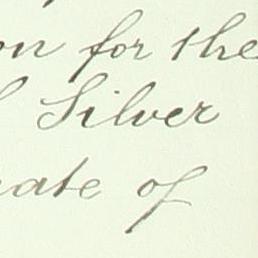 on for the
Silver
ate of